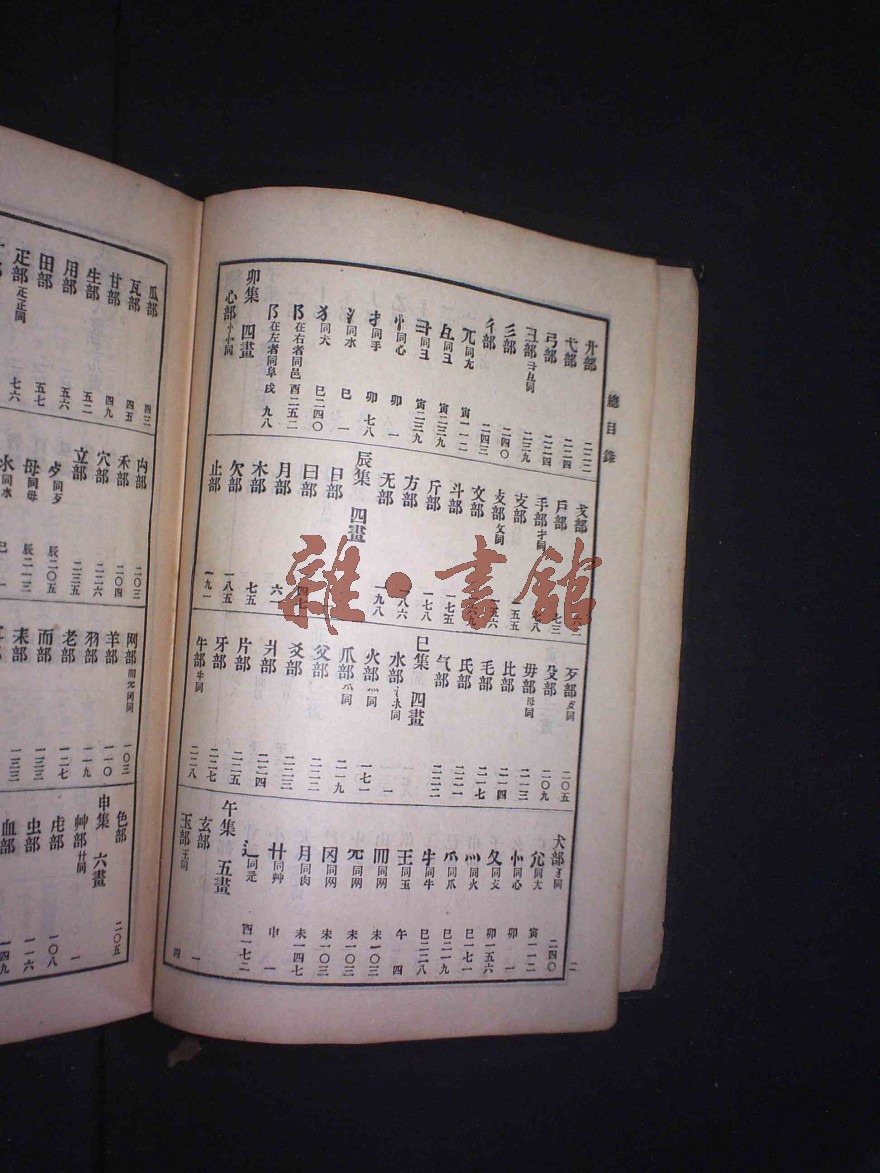 總目錄
廾部 二二二
弋部 二二四
弓部 二二四
彐部 彑⺕同 二三九
彡部 二四〇
彳部 二四三
兀同尢 寅一一二
彑同彐 寅二三九
⺕同彐 寅二三九
忄同心 卯一
扌同手 卯七八
氵同水 巳一
犭同犬 巳二四〇
阝在右者同邑 酉二五二
阝在左者同阜 戌九八
卯集 四畫
心部 忄㣺同
戈部
戶部 七三
手部 扌同 七八
支部 一五五
攴部 攵同
文部
斗部 一七五
斤部 一七八
方部 一八六
无部 一九八
辰集 四畫
日部
曰部 四七
月部 六一
木部 七五
欠部 一八五
止部 一九一
歹部 歺同 二〇五
殳部 二〇九
毋部 母同 二一三
比部 二一四
毛部 二一七
氏部 二二一
气部 二二二
巳集 四畫
水部 氵氺同 一
火部 灬同 一七一
爪部 爫同 二一九
父部 二二二
爻部 二二三
爿部 二二四
片部 二二五
牙部 二二七
牛部 牜同 二二八
犬部 犭同 二四〇
尣同尢 寅一一二
忄同心 卯一
攵同攴 卯一五六
灬同火 巳一七一
爫同爪 巳二一九
牛同牛 巳二二八
王同玉 午四
罒同网 未一〇三
同网 未一〇三
冈同网 未一〇三
月同肉 未一四七
艹同艸 申一
辶同辵 酉一七二
午集 五畫
玄部 一
玉部 王同 四
二
瓜部 四三
瓦部 四五
甘部 四九
生部 五二
用部 五六
田部 五七
疋部 同 七六
禸部 二〇三
禾部 二〇四
穴部 二二六
立部 二三五
歺同歹 辰二〇五
母同毋 辰二一三
氺同水 巳一
网部 一〇三
羊部 一一〇
羽部 一一九
老部 一二七
而部 一三三
耒部 一三三
色部 二〇五
申集 六畫
艸部 艹同 一
虍部 一〇八
虫部 一一六
血部 一四九
雜·書館